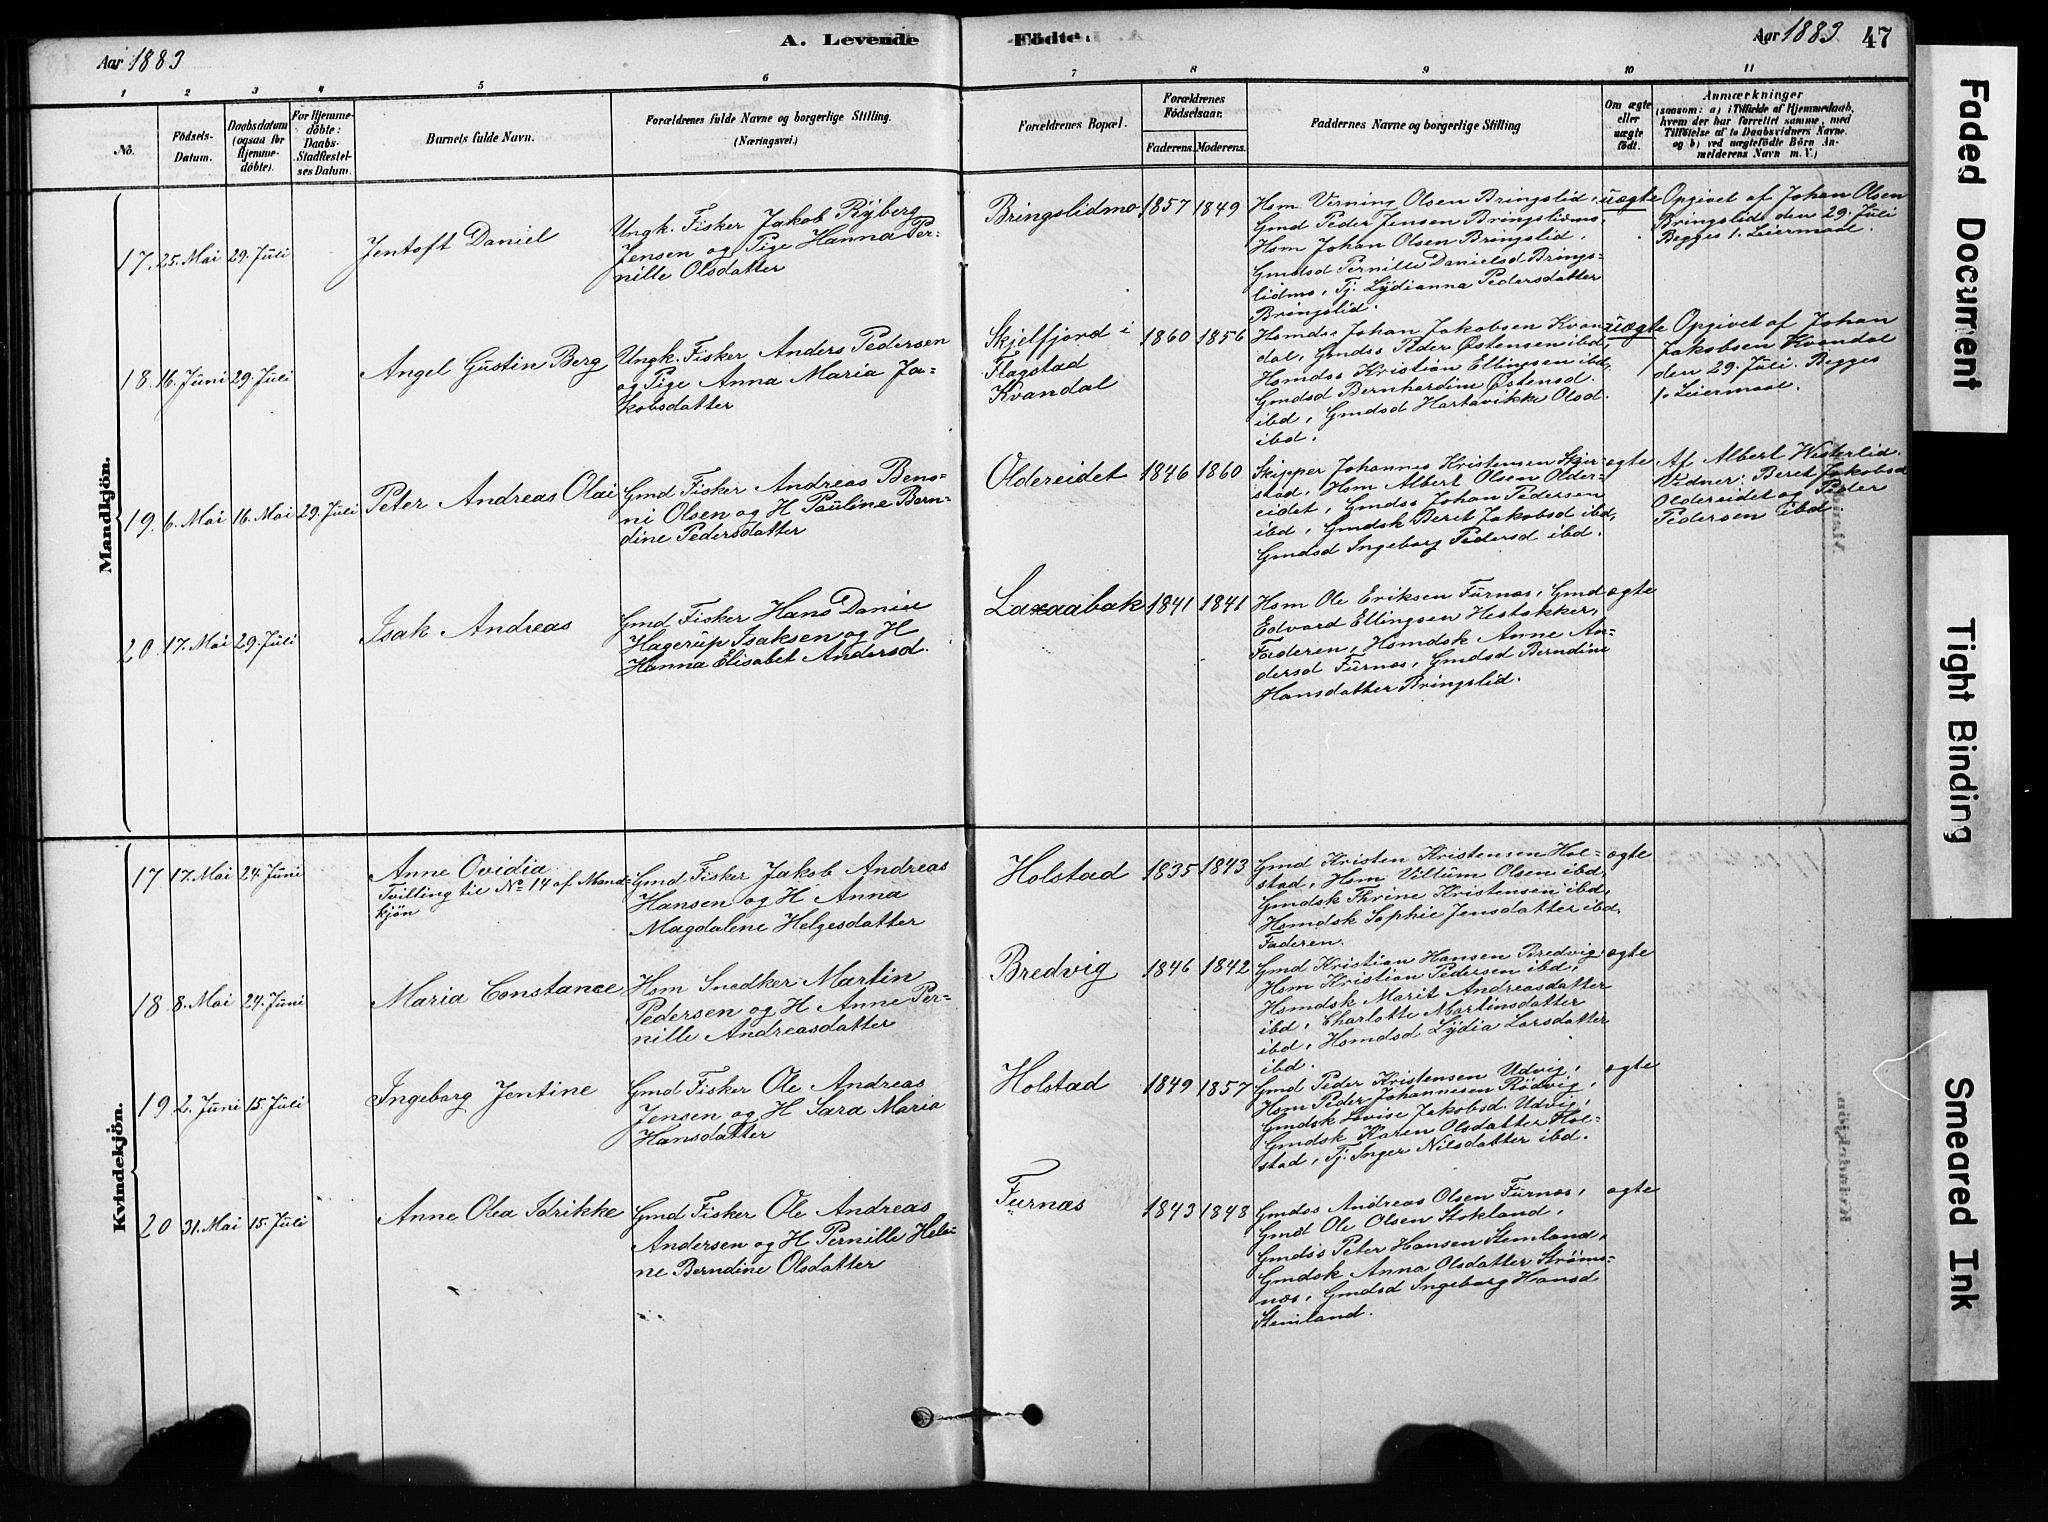 Aar 1883
A. Levende Födte.
Aar 1883
47
1
2
3
4
5
6
7
8
9
10
11
No.
Födsels-
Datum.
Daabsdatum
(ogsaa for
Hjemme-
döbte).
For Hjemme-
döbte:
Daabs-
Stadfæstel-
ses Datum.
Barnets fulde Navn.
Forældrenes fulde Navne og borgerlige Stilling.
(Næringsvei.)
Forældrenes Bopæl.
Forældrenes
Födselsaar.
Faderens. Moderens.
Faddernes Navne og borgerlige Stilling
Om ægte
eller
uægte
födt.
Anmærkninger
(saasom: a) i Tilfælde af Hjemmedaab,
hvem der har forrettet samme, med
Tilföielse af to Daabsvidners Navne.
og b) ved uægtefödte Börn An-
melderens Navn m. V.)
Mandkjön.
17. 25. Mai 29. Juli
Jentoft Daniel
Ungk. Fisker Jakob Ryberg
Jensen og Pige Hanna Per-
nille Olsdatter
Bringslidmo 1857 1849
Hsm Virning Olsen Bringslid,
Gmd Peder Jensen Bringslidmo,
Hsm Johan Olsen Bringslid,
Gmdsd Pernille Danielsd Brings-
lidmo, Tj. Lydianna Pedersdatter
Bringslid.
uægte
Opgivet af Johan Olsen
Bringslid den 29. Juli
Begges 1. Leiermaal.
18. 16. Juni 29. Juli
Angel Gustin Berg
Ungk. Fisker Anders Pedersen
og Pige Anna Maria Ja-
kobsdatter
Skjelfjord i
Flagstad
Kvandal
1860 1856
Hsmds Johan Jakobsen Kvan-
dal, Gmdss Peder Østensen ibd,
Hsmdss Kristian Ellingsen ibd,
Gmdsd Bernhardine Østensd.
ibd, Gmdsd Hartavikke Olsd.
ibd.
uægte
Opgivet af Johan
Jakobsen Kvandal
den 29. Juli. Begges
1. Leiermaal.
19. 6. Mai 16. Mai 29. Juli
Peter Andreas Olai
Gmd Fisker Andreas Beno-
ni Olsen og H Pauline Bern-
dine Pedersdatter
Oldereidet 1846 1860
Skipper Johannes Kristensen Skjer-
stad, Hsm Albert Olsen Older-
eidet, Gmdss Johan Pedersen
ibd, Gmdsk Beret Jakobsd ibd,
Gmdsd Ingeborg Pedersd ibd.
ægte
Af Albert Westerlid.
Vidner: Beret Jakobsd
Oldereidet og Peder
Pedersen ibd
20 17. Mai 29. Juli
Isak Andreas
Gmd Fisker Hans Daniel
Hagerup Isaksen og H
Hanna Elisabet Andersd.
Laxaabak 1841 1841
Hsm Ole Eriksen Furnæs, Gmd
Edvard Ellingsen Hestakker,
Faderen, Hsmdsk Anne An-
dersd Furnæs, Gmdsd Berndine
Hansdatter Bringslid.
ægte
Kvindekjön.
17 17. Mai 24. Juni
Anne Ovidia
Tvilling til No 14 af Mand-
kjön
Gmd Fisker Jakob Andreas
Hansen og H Anna
Magdalene Helgesdatter
Holstad 1835 1843
Gmd Kristen Kristensen Hol-
stad, Hsm Villum Olsen ibd,
Gmdsk Thrine Kristensen ibd,
Hsmdsk Sophie Jensdatter ibd,
Faderen.
ægte
18 8. Mai 24. Juni
Maria Constance
Hsm Snedker Martin
Pedersen og H Anne Per-
nille Andreasdatter
Bredvig 1846 1842
Gmd Kristian Hansen Bredvig,
Hsm Kristian Pedersen ibd,
Hsmdsk Marit Andreasdatter
ibd, Charlotte Martinsdatter
ibd, Hsmdsd Lydia Larsdatter
ibd.
ægte
19 2. Juni 15. Juli
Ingeborg Jentine
Gmd Fisker Ole Andreas
Jensen og H Sara Maria
Hansdatter
Holstad 1849 1857
Gmd Peder Kristensen Udvig,
Hsm Peder Johannesen Rødvig,
Gmdsk Lovise Jakobsd. Udvig,
Gmdsk Karen Olsdatter Hol-
stad, Tj. Inger Nilsdatter ibd.
ægte
20 31. Mai 15. Juli
Anne Olea Idrikke
Gmd Fisker Ole Andreas
Andersen og H Pernille Hele-
ne Berndine Olsdatter
Furnæs 1843 1848
Gmdss Andreas Olsen Furnæs,
Gmd Ole Olsen Stokland,
Gmdss Peter Hansen Stemland,
Gmdsk Anna Olsdatter Strøms-
næs, Gmdsd Ingeborg Hansd
Stemland.
ægte
Faded Document
Tight Binding
Smeared Ink